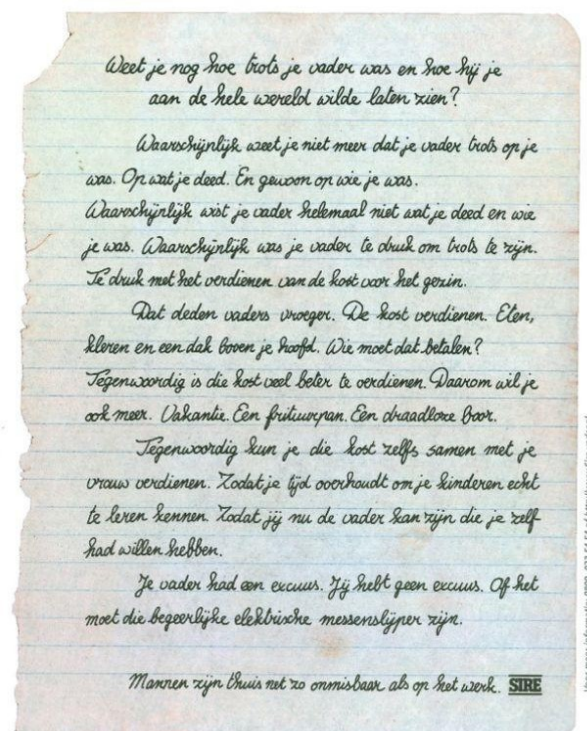 Weet je nog hoe trots je vader was en hoe hij je
aan de hele wereld wilde laten zien?
Waarschijnlijk weet je niet meer dat je vader trots op je
was. Op wat je deed. En gewoon op wie je was.
Waarschijnlijk wist je vader helemaal niet wat je deed en wie
je was. Waarschijnlijk was je vader te druk om trots te zijn.
Te druk met het verdienen van de kost voor het gezin.
Dat deden vaders vroeger. De kost verdienen. Eten,
kleren en een dak boven je hoofd. Wie moet dat betalen?
Tegenwoordig is die kost veel beter te verdienen. Daarom wil je
ook meer. Vakantie. Een frituurpan. Een draadloze boor.
Tegenwoordig kun je die kost zelfs samen met je
vrouw verdienen. Zodat je tijd overhoudt om je kinderen echt
te leren kennen. Zodat jij nu de vader kan zijn die je zelf
had willen hebben.
Je vader had een excuus. Jij hebt geen excuus. Of het
moet die begeerlijke elektrische messenslijper zijn.
Mannen zijn thuis net zo onmisbaar als op het werk. SIRE